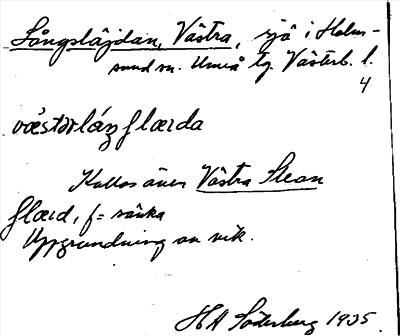 Långsläjdan, Västra, sjö i Holm-
sund sn. Umeå tg. Västerb. l.
4
våstərláŋ flærda
Kallas även Västra
flærd, f = sänka
Uppgrundning av vik.
HA Söderberg 1935